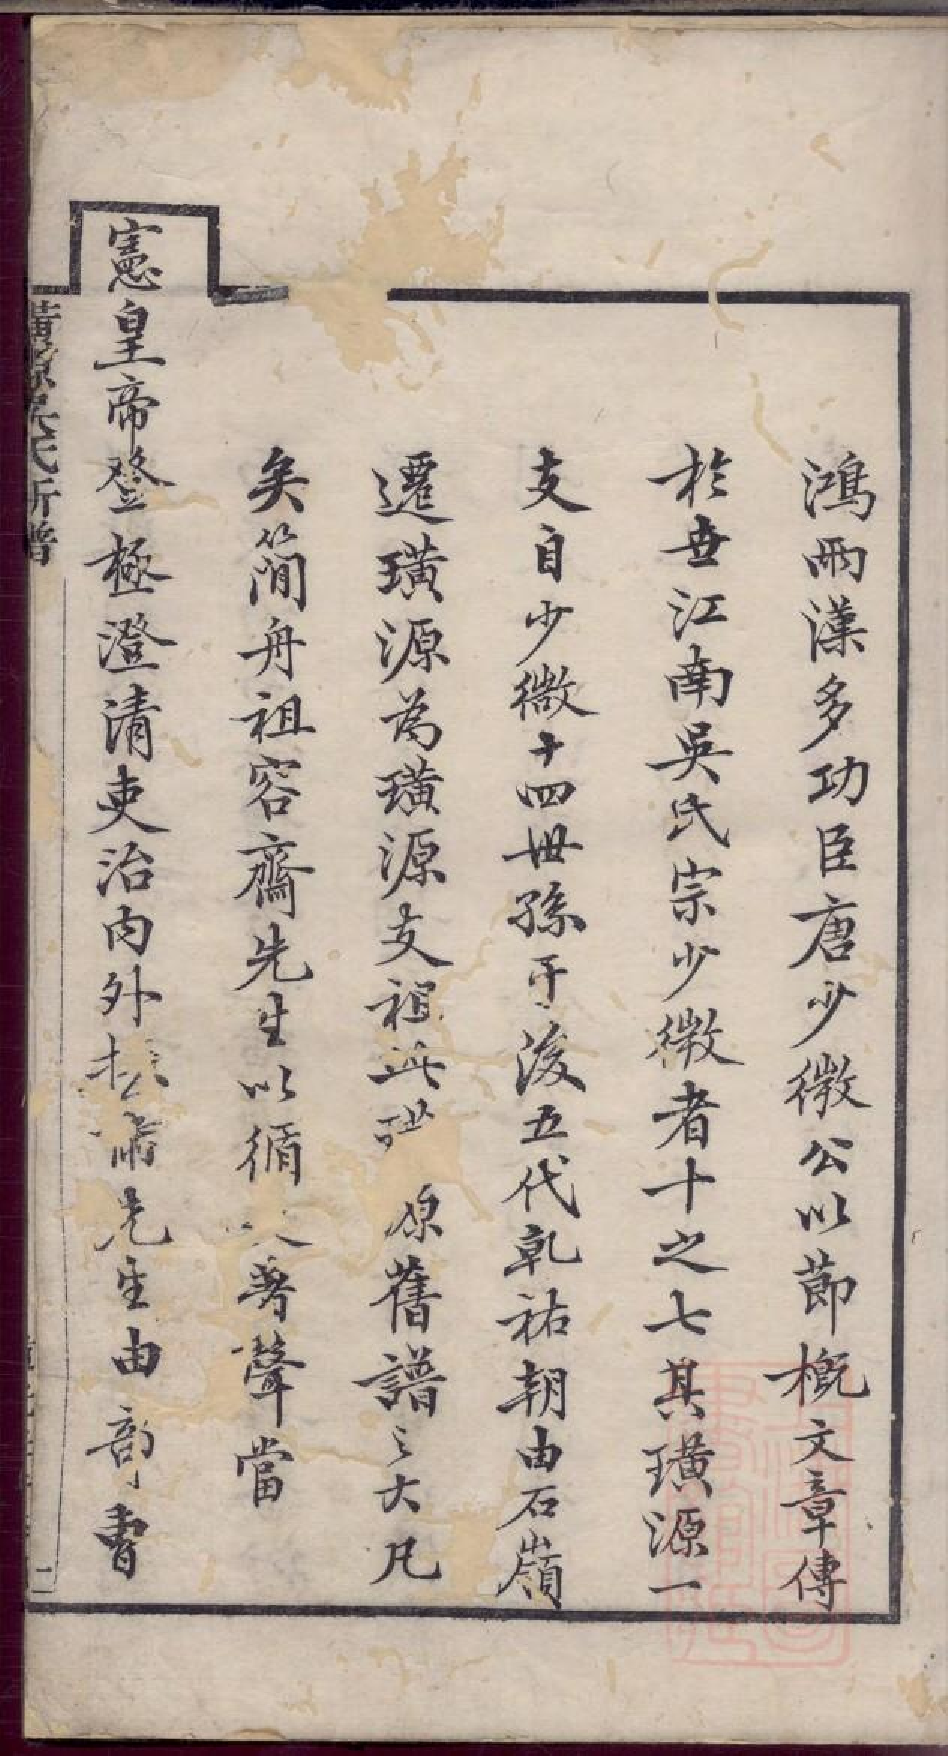 鴻兩漢多功臣唐少微公以節槪文章傳
於世江南吳氏宗少微者十之七其璜源一
支自少微十四世孫子浚五代乹祐朝由石嶺
遷璜源為璜源支祖此璜源舊譜之大凡
矣簡舟祖容齋先生以循吏著聲當
憲皇帝登極澄清吏治內外振肅先生由部曹
璜源吳氏新譜
二